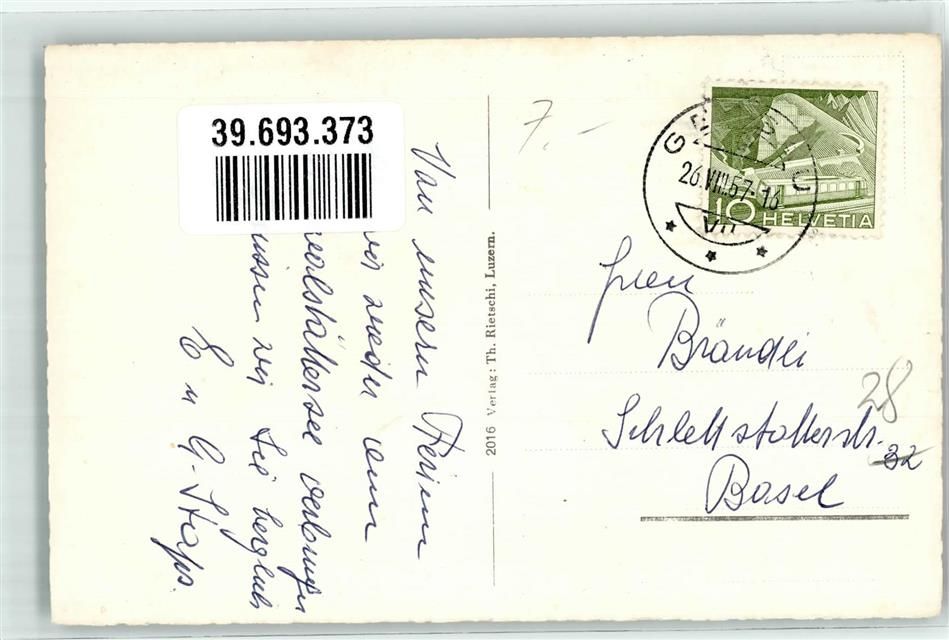 39.693.373
Von unsern Ferien
wir wieder am
verbringen
grüssen wir Sie herzlich
E u G. Staps.
2016 Verlag: Th. Rietschi, Luzern.
7.-
26.VIII.57-16
10 HELVETIA
Herrn
Brändli
Schlettstatterstr.
28
32
Basel